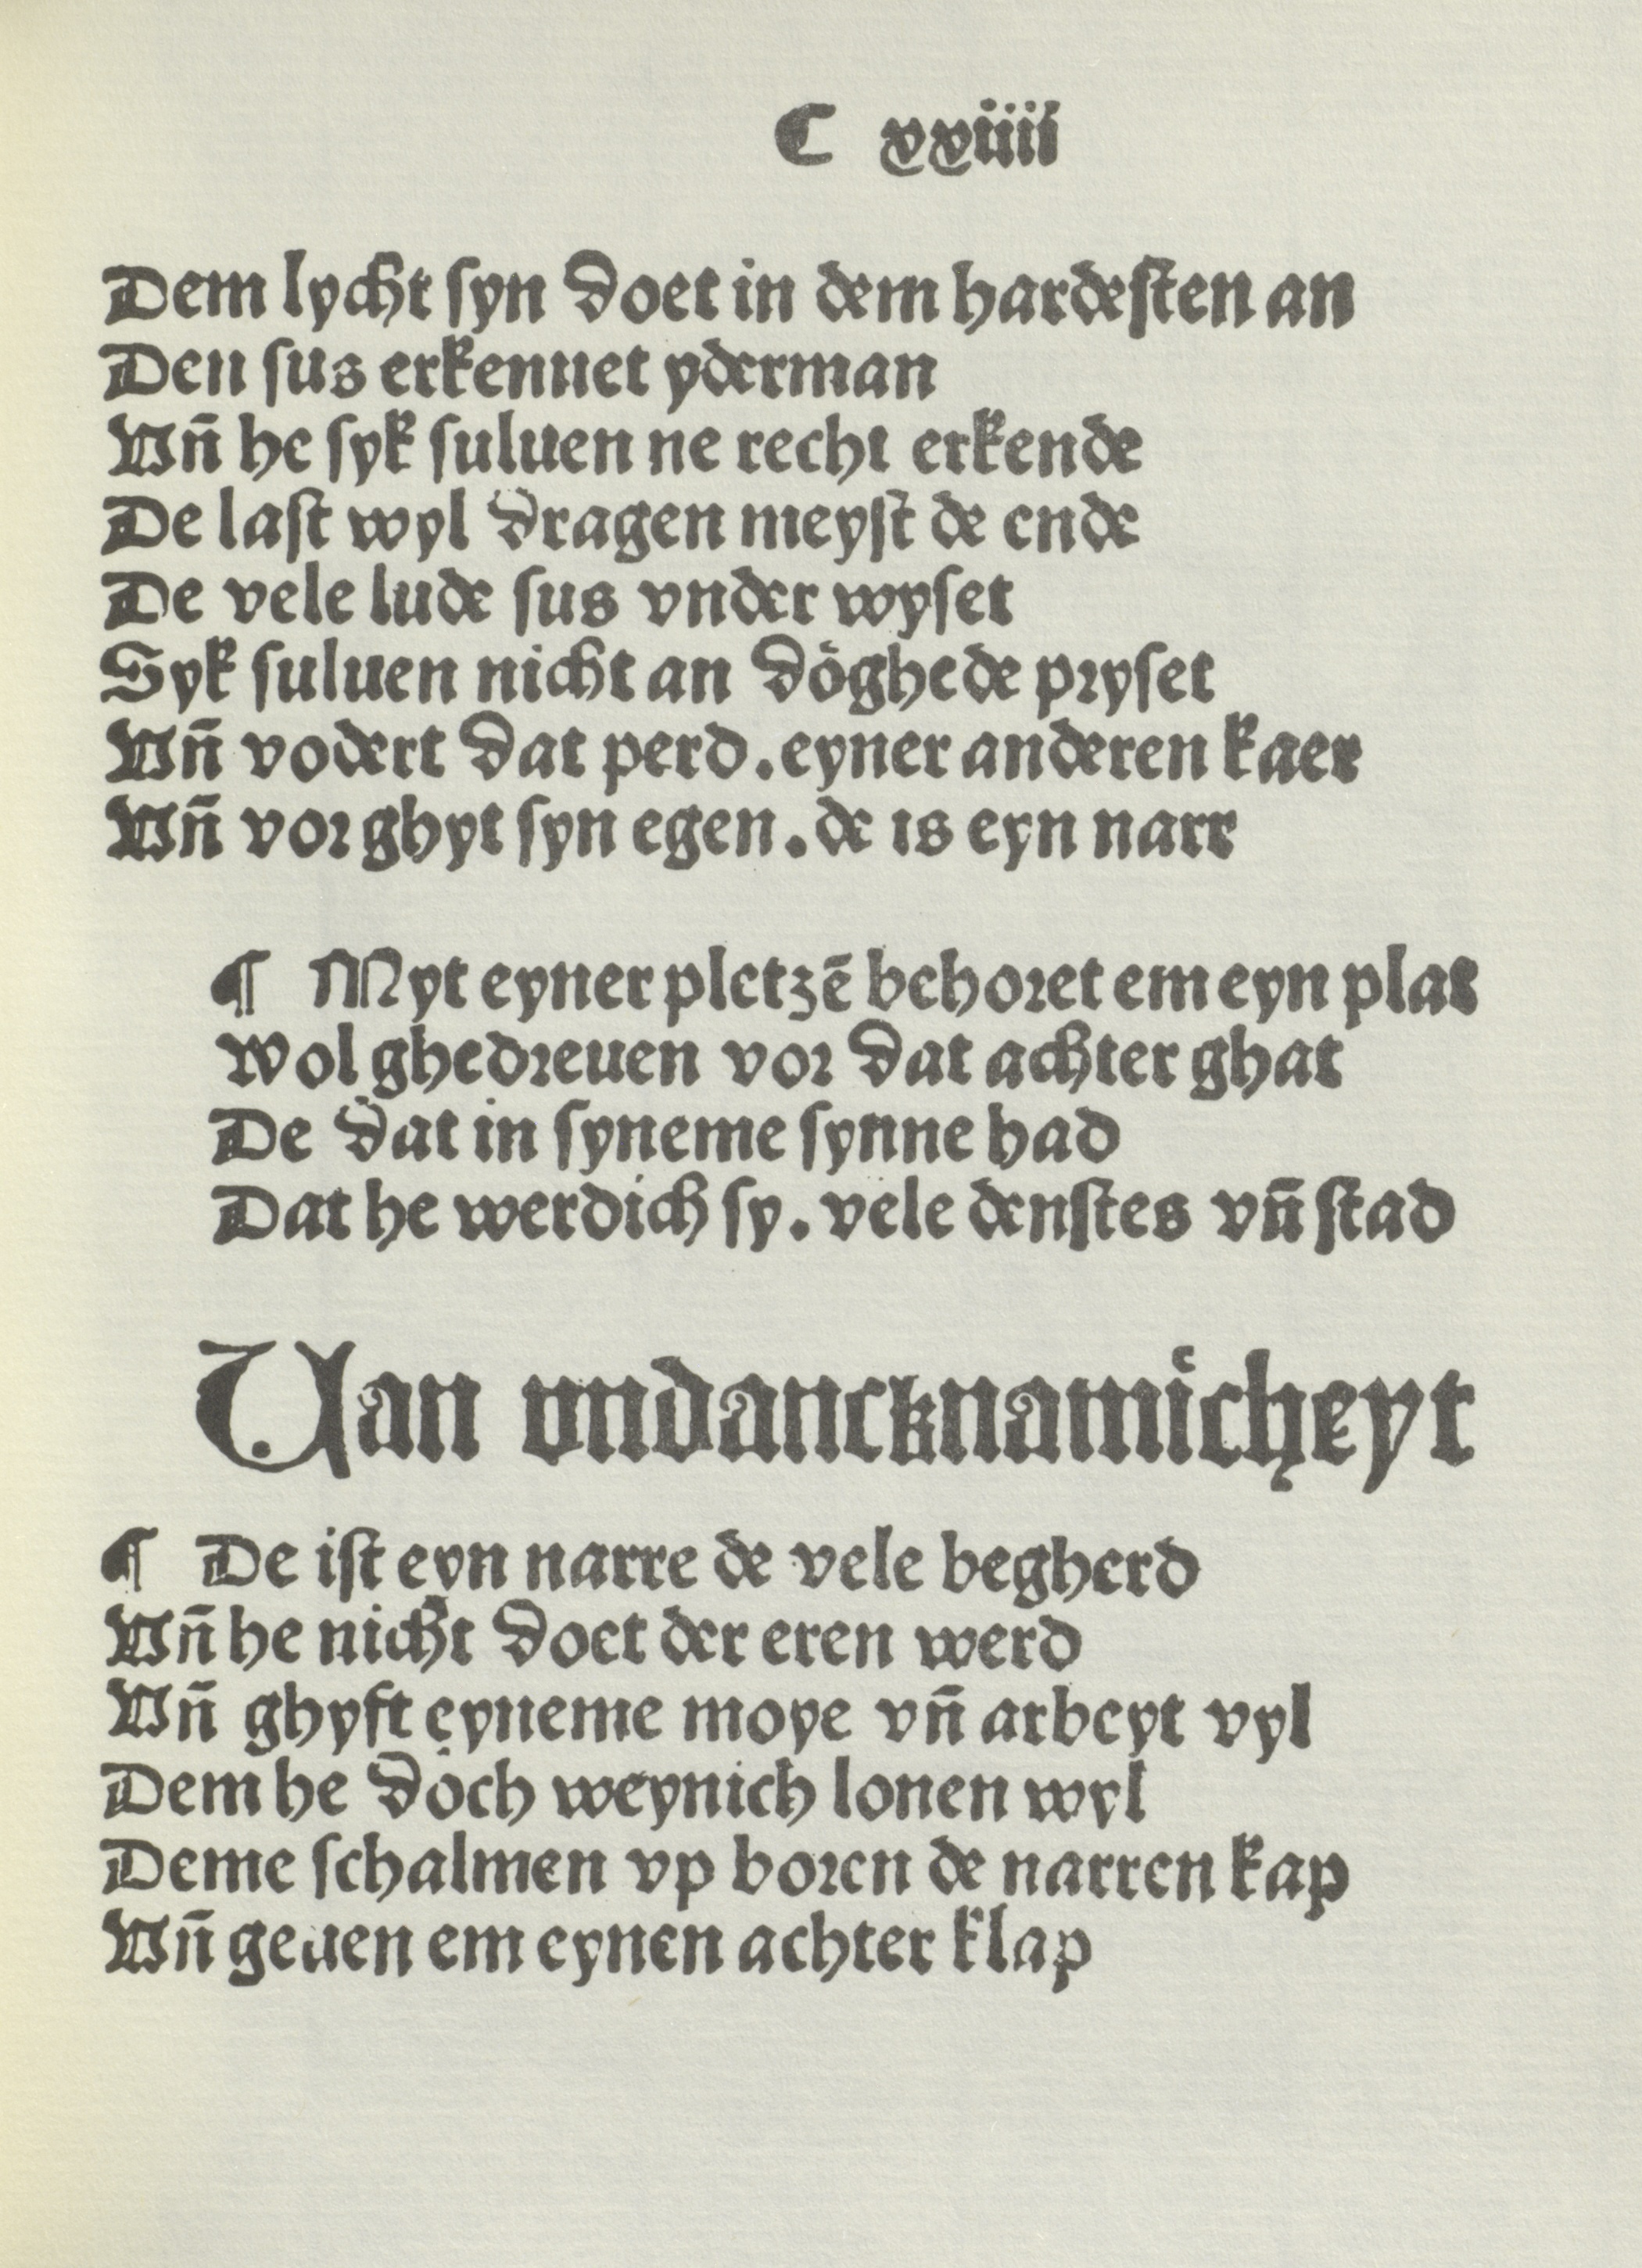 C xxiiii
Dem lycht syn doet in dem hardesten an
Den sus erkennet yderman
Vn̄ he syk suluen ne recht erkende
De last wyl dragen meyst de ende
De vele lude sus vnder wyset
Syk suluen nicht an döghede pryset
Vn̄ vodert dat perd. eyner anderen kaer
Vn̄ vor ghyt syn egen. de is eyn narr
¶ Myt eyner pletzē behoret em eyn plas
Wol ghedreuen vor dat achter ghat
De dat in syneme synne had
Dat he werdich sy. vele denstes vn̄ stad
Uan vndancknamicheyt
¶ De ist eyn narre de vele begherd
Vn̄ he nicht doet der eren werd
Vn̄ ghyft eyneme moye vn̄ arbeyt vyl
Dem he doch weynich lonen wyl
Deme schalmen vp boren de narren kap
Vn̄ geuen em eynen achter klap